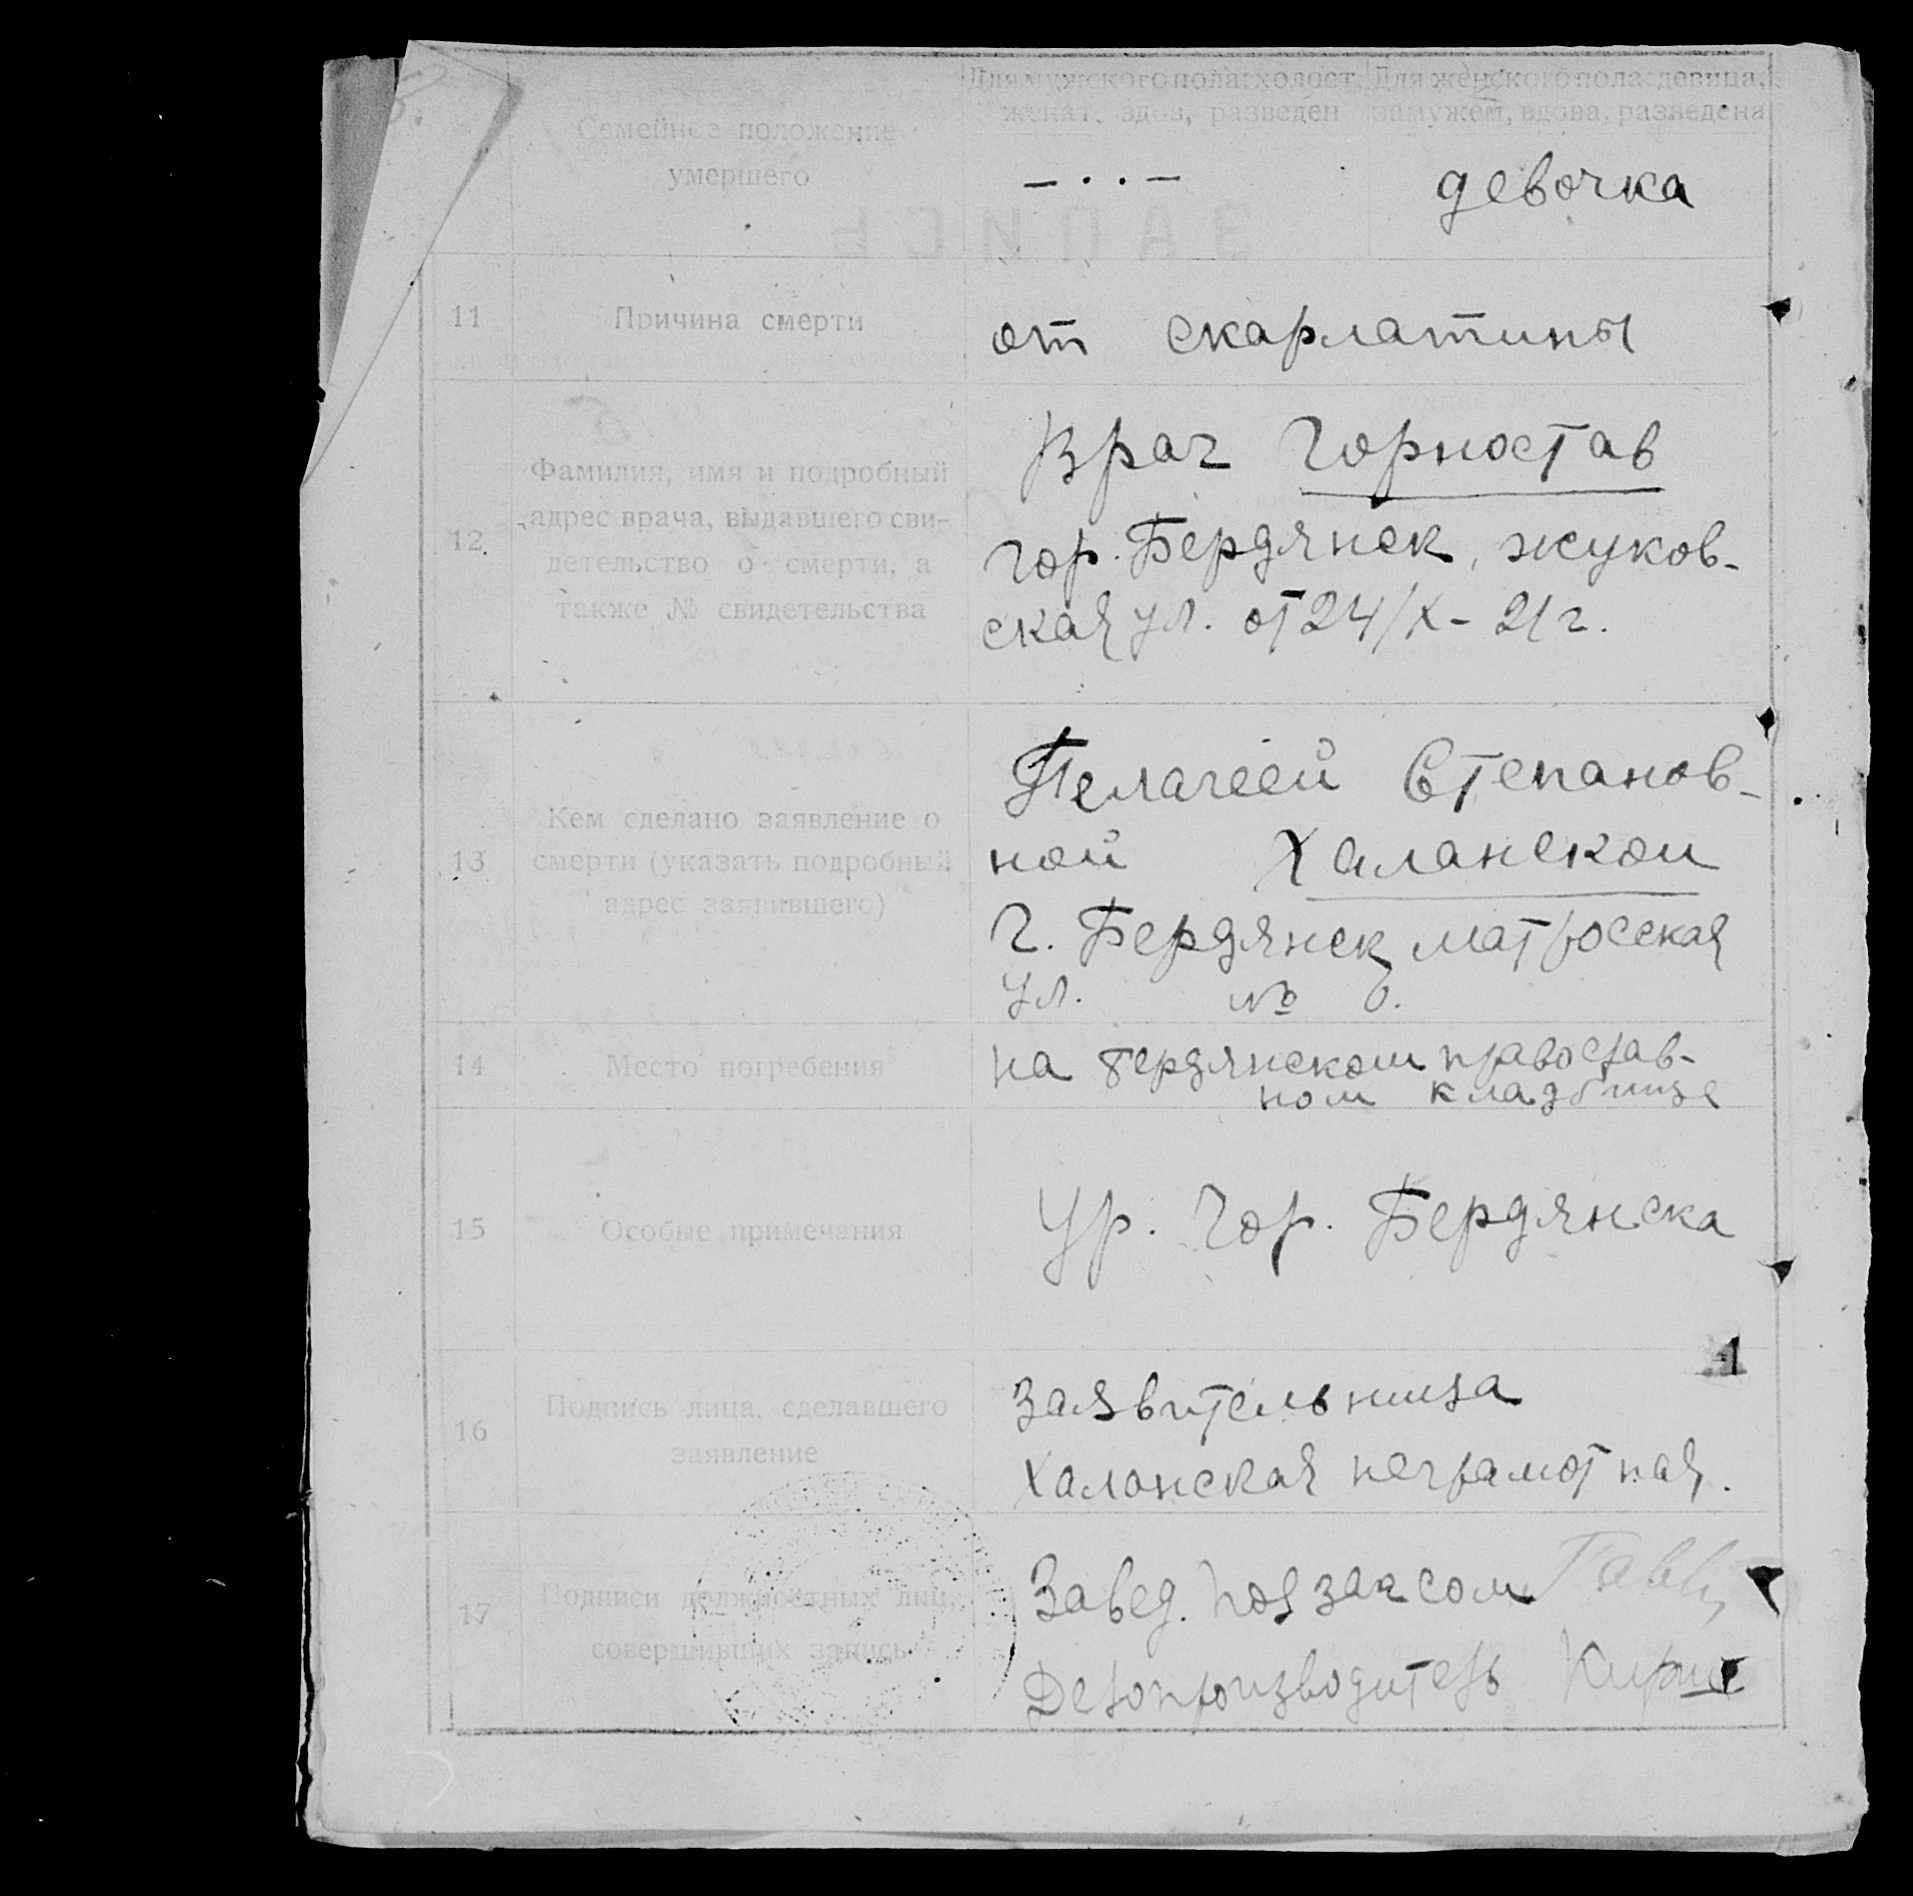 Семейное положение
умершего
Для мужского пола: холост,
женат, вдов, разведен
Для женского пола: девица,
замужем, вдова, разведена
— . . —
девочка
11
Причина смерти
от скарлатины
12
Фамилия, имя и подробный
адрес врача, выдавшего сви-
детельство о смерти, а
также № свидетельства
Врач Горностав
гор. Бердянск, жуков-
ская ул. от 24/X - 21 г.
13
Кем сделано заявление о
смерти (указать подробный
адрес заявившего)
Пелагеей Степанов-
ной Халанской
г. Бердянск матросская
ул. № 6.
14
Место погребения
на бердянском православ-
ном кладбище
15
Особые примечания
Ур. гор. Бердянска
1
16
Подпись лица, сделавшего
заявление
Заявительница
Халанская неграмотная.
17
Подписи должностных лиц,
совершивших запись
Завед. подзагсом
Делопроизводитель
ЗАПИСЬ